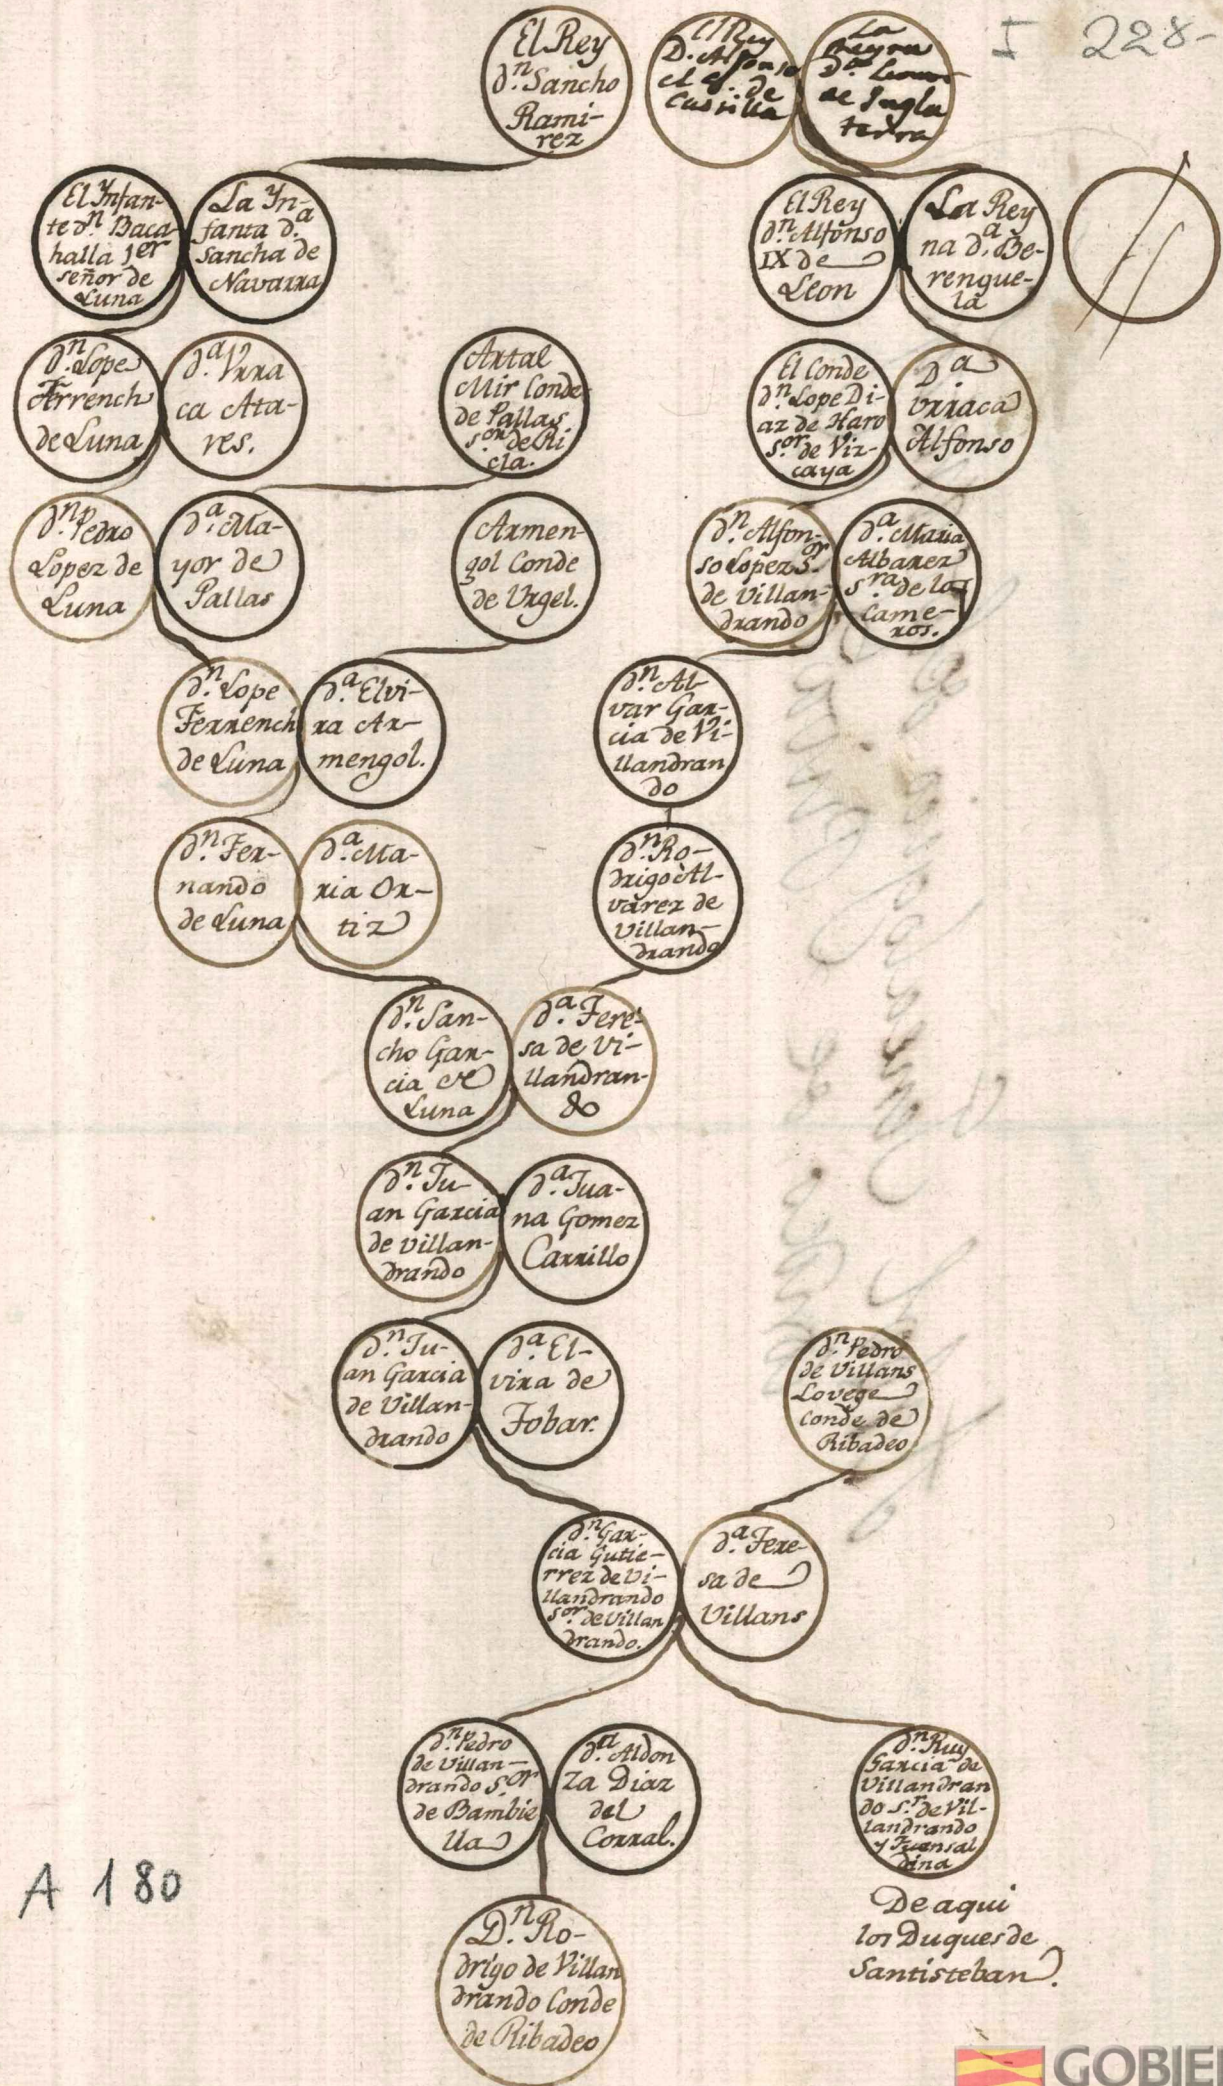 I 228-
El Rey
d.n Sancho
Rami-
rez
El Rey
D. Alfonso
el 8.º de
Castilla
La
Reyna
D.ª Leonor
de Ingla
terra
El Ynfan-
te d.n Baca-
halla 1er
señor de
Luna
La Yn-
fanta d.a
Sancha de
Navarra
El Rey
d.n Alfonso
IX de
Leon
La Rey
na d.a Be-
rengue-
la
d.n Lope
Ferrench
de Luna
d.a Vrra
ca Ata-
res.
Artal
Mir Conde
de Pallas
s.or de Ri
cla.
El Conde
d.n Lope Di-
az de Haro
s.or de Viz-
caya
D.a
Vrraca
Alfonso
d.n Pedro
Lopez de
Luna
d.a Ma-
yor de
Pallas
Armen-
gol Conde
de Vrgel.
d.n Alfon-
so Lopez S.or
de Villan-
drando
d.a Maria
Albarez
s.ra de los
Came-
ros.
d.n Lope
Ferrench
de Luna
d.a Elvi-
ra Ar-
mengol.
d.n Al-
var Gar-
cia de Vi-
llandran
do
d.n Fer-
nando
de Luna
d.a Ma-
ria Or-
tiz
d.n Ro-
drigo Al-
varez de
Villan-
drando
d.n San-
cho Gar-
cia de
Luna
d.a Tere-
sa de Vi-
llandran-
do
d.n Ju-
an Garcia
de Villan-
drando
d.a Jua-
na Gomez
Carrillo
d.n Ju-
an Garcia
de Villan-
drando
d.a El-
vira de
Tobar.
d.n Pedro
de Villans
Lovege
Conde de
Ribadeo
d.n Gar-
cia Gutie-
rrez de Vi-
llandrando
s.or de Villan
drando.
d.a Tere-
sa de
Villans
d.n Pedro
de Villan-
drando s.or
de Bambie
lla
d.a Aldon
za Diaz
del
Corral.
d.n Ruy
Garcia de
Villandran
do s.r de Vil-
landrando
y Fuensal
dina
De aqui
los Duques de
Santisteban.
A 180
D.n Ro-
drigo de Villan
drando Conde
de Ribadeo
GOBIE